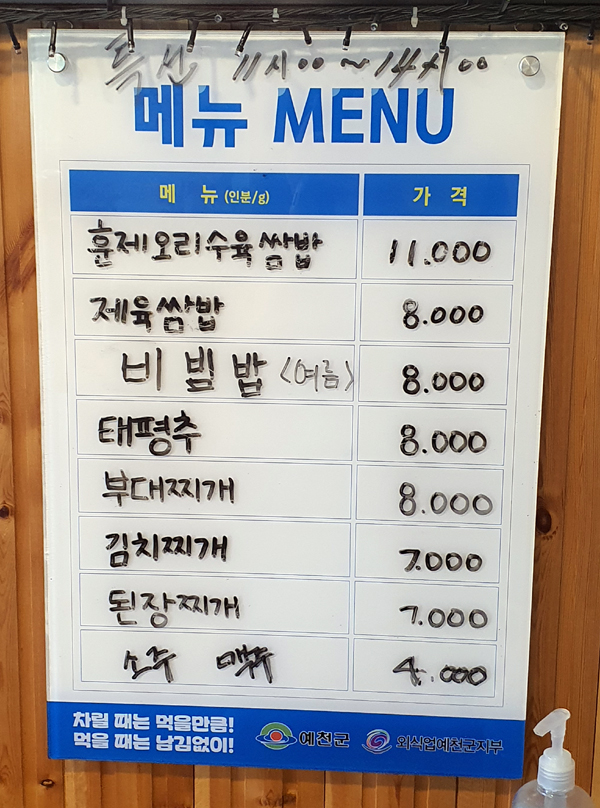 특선 11시00~14시00
메뉴 MENU
메 뉴 (인분/g) 가 격
훈제오리수육쌈밥 11.000
제육쌈밥 8.000
비빔밥 <여름> 8.000
태평추 8.000
부대찌개 8.000
김치찌개 7.000
된장찌개 7.000
소주 맥주 4.000
차릴 때는 먹을만큼!
먹을 때는 남김없이!
예천군 외식업예천군지부